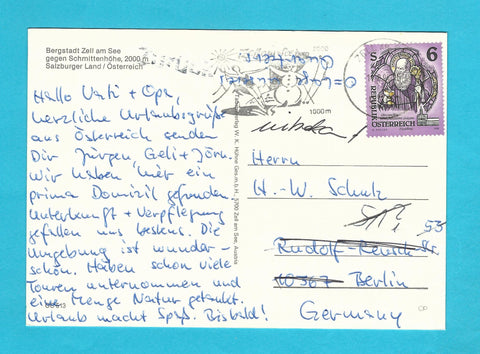 Bergstadt Zell am See
gegen Schmittenhöhe, 2000 m
Salzburger Land / Österreich
Hallo Vati + Opa,
herzliche Urlaubsgrüße
aus Österreich senden
Dir Jürgen, Geli + Jörn.
Wir haben hier ein
prima Domizil gefunden.
Unterkunft + Verpflegung
gefallen uns bestens. Die
Umgebung ist wunder-
schön. Haben schon viele
Touren unternommen und
eine Menge Natur getankt.
Urlaub macht Spaß. Bisbald!
2000
1000m
S 6
REPUBLIK
ÖSTERREICH
Herrn
H.-W. Schulz
53
Rudolf- Str.
10367 Berlin
Germany